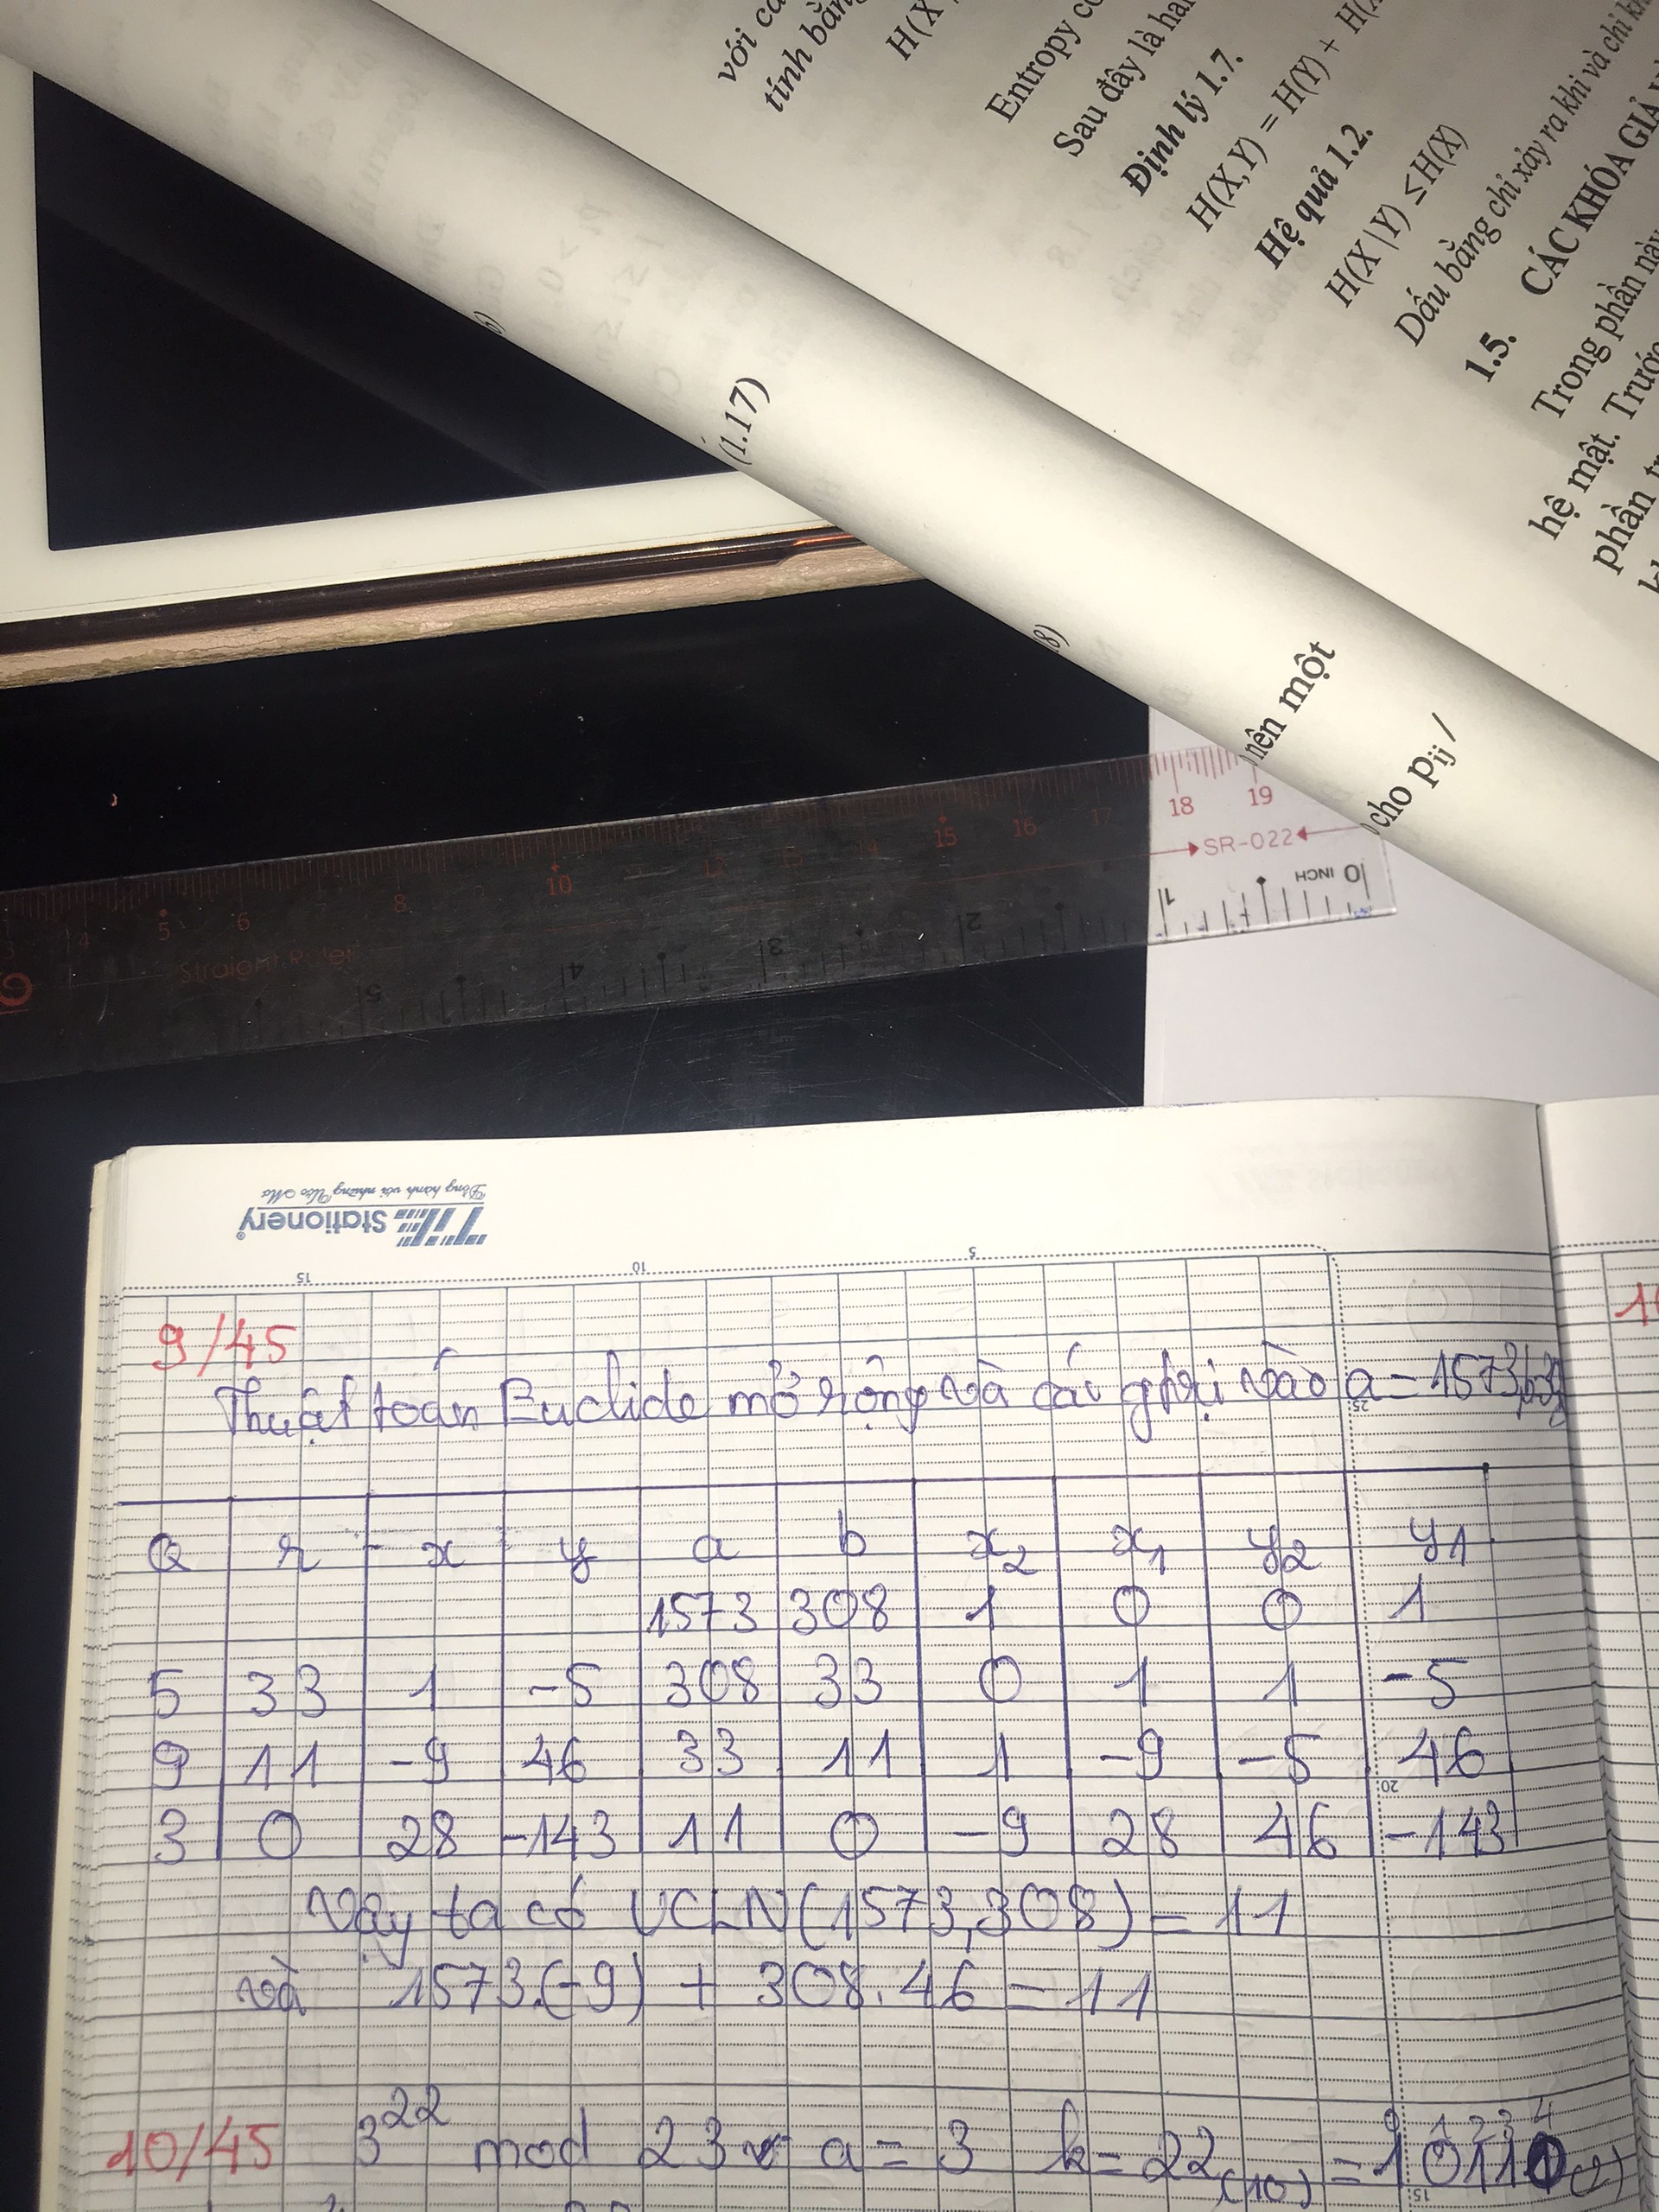 với
tính bằng
H(X
Entropy
Sau đây là
Định lý 1.7.
H(X,Y) = H(Y) +
Hệ quả 1.2.
H(X|Y) ≤ H(X)
Dấu bằng chỉ xảy ra khi và chỉ
1.5. CÁC KHÓA GIẢ
Trong phần này
hệ mật. Trước
phần
(1.17)
nên một
cho pij /
Straight Ruler
4 5 6 8 10 12 13 14 15 16 17 18 19
SR-022
0 INCH 1 2 3 4 5 6
TLE Stationery
Đồng hành với những Ước Mơ
15 10 5
9/45
Thuật toán Euclide mở rộng và các gtrị vào a = 1573,
25
Q r x y a b x2 x1 y2 y1
1573 308 1 0 0 1
5 33 1 -5 308 33 0 1 1 -5
9 11 -9 46 33 11 1 -9 -5 46
20
3 0 28 -143 11 0 -9 28 46 -143
Vậy ta có UCLN(1573,308) = 11
và 1573.(-9) + 308.46 = 11
0 1 2 3 4
10/45 3^22 mod 23 a = 3 k = 22(10) = 10110(2)
15